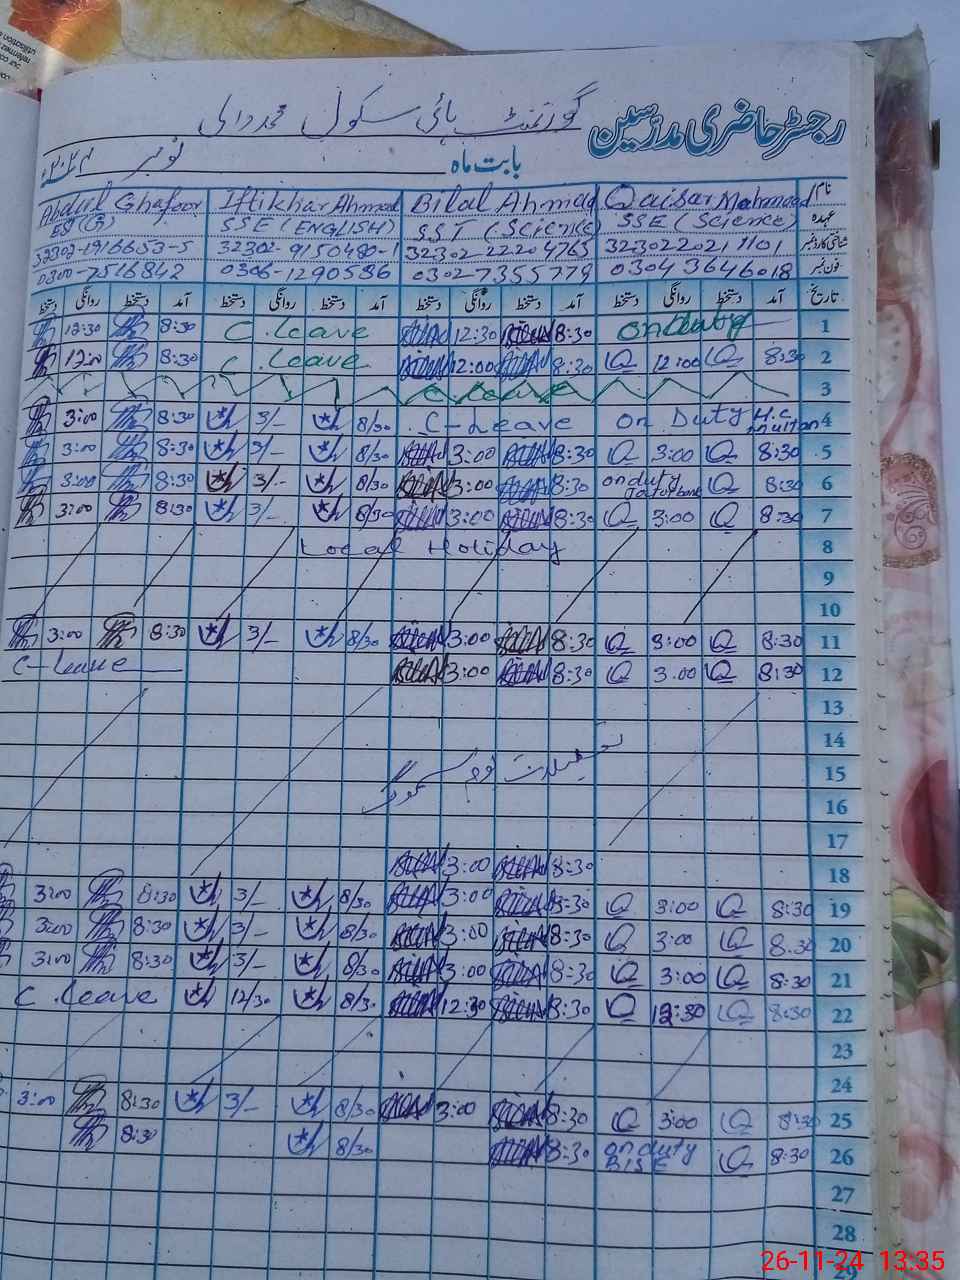 گورنمنٹ ہائی سکول محمد والی
رجسٹر حاضری مدرسین
بابت ماہ نومبر
نام Qaisar Mahmood Bilal Ahmad Iftikhar Ahmad Abdul Ghafoor
عہدہ SSE (Science) SST (Science) SSE (ENGLISH) EST
شناختی کارڈ نمبر 32302-22204763 32302-9150480-1 32302-1916653-5
فون نمبر 0304 3646018 0302-7355779 0306-1290586 0300-7516842
تاریخ آمد دستخط روانگی دستخط آمد دستخط روانگی دستخط آمد دستخط روانگی دستخط آمد دستخط روانگی دستخط
1 on Duty 8:30 12:30 C. Leave 8:30 12:30
2 8:30 12:00 8:30 12:00 C. Leave 8:30
3 C Leave
4 On Duty H.C Multan C-Leave 8/30 3/- 8:30 3:00
5 8:30 3:00 8:30 3:00 8/30 3/- 8:30 3:00
6 8:30 on duty 8:30 3:00 8/30 3/- 8:30 3:00
7 8:30 3:00 8:30 3:00 8/30 3/- 8:30 3:00
8 Local Holiday
9
10
11 8:30 3:00 8:30 3:00 8/30 3/- 8:30 3:00
12 8:30 3.00 8:30 3:00 C-Leave
13
14
تعطیلات بوجہ سموگ
15
16
17
18 8:30 3:00
19 8:30 3:00 8:30 3:00 8/30 3/- 8:30 3:00
20 8.30 3:00 8:30 3:00 8/30 3/- 8:30 3:00
21 8:30 3:00 8:30 3:00 8/30 3/- 8:30 3:00
22 8:30 12:30 8:30 12:30 8/30 12/30 C. Leave
23
24
25 8:30 3:00 8:30 3:00 8/30 3/- 8:30 3:00
26 8:30 on duty BISE 8:30 8/30 8:30
27
28
29
26-11-24 13:35